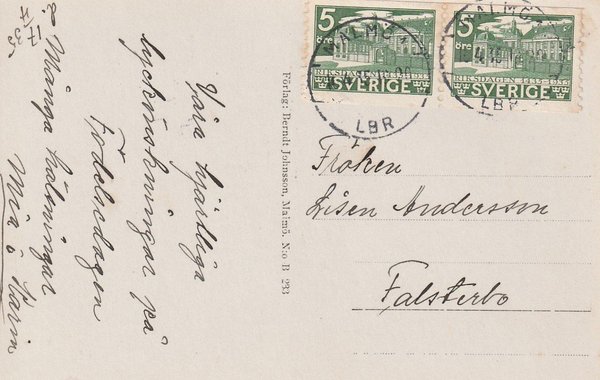 Våra hjärtliga
lyckönskningar på
Födelsedagen
Många hälsningar
Mia & Karin
17/7 35
Förlag: Berndt Johnsson, Malmö. N:o B 233
5
öre
RIKSDAGEN 1435-1935
SVERIGE
5
öre
RIKSDAGEN 1435-1935
SVERIGE
MALMÖ
LBR
MALMÖ
LBR
Fröken
Lisen Andersson
Falsterbo